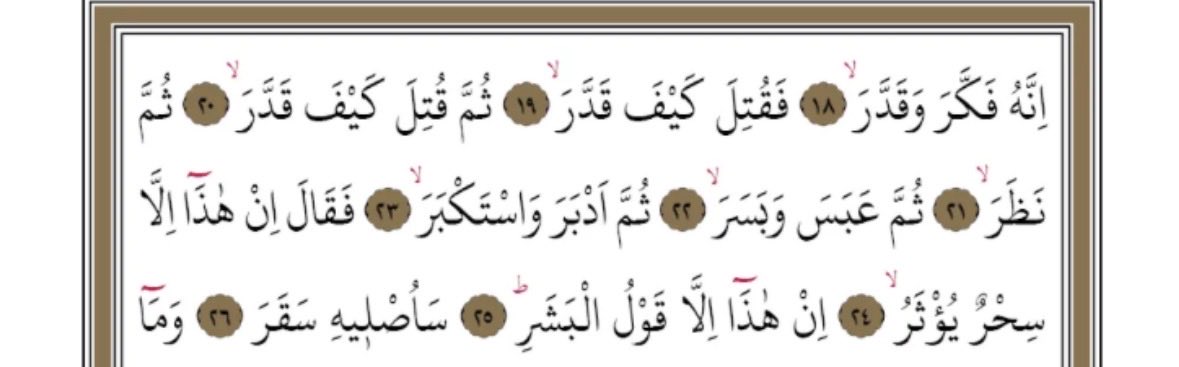 اِنَّهُ فَكَّرَ وَقَدَّرَۙ ﴿١٨﴾ فَقُتِلَ كَيْفَ قَدَّرَۙ ﴿١٩﴾ ثُمَّ قُتِلَ كَيْفَ قَدَّرَۙ ﴿٢٠﴾ ثُمَّ
نَظَرَۙ ﴿٢١﴾ ثُمَّ عَبَسَ وَبَسَرَۙ ﴿٢٢﴾ ثُمَّ اَدْبَرَ وَاسْتَكْبَرَۙ ﴿٢٣﴾ فَقَالَ اِنْ هٰذَٓا اِلَّا
سِحْرٌ يُؤْثَرُۙ ﴿٢٤﴾ اِنْ هٰذَٓا اِلَّا قَوْلُ الْبَشَرِۜ ﴿٢٥﴾ سَاُصْل۪يهِ سَقَرَ ﴿٢٦﴾ وَمَٓا